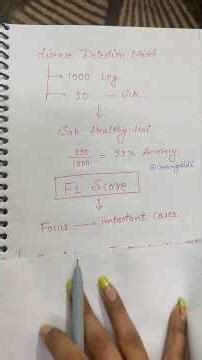 Disease Detection Model
→ 1000 Log
→ 10 — sick
Sab Healthy Hai
990/1000 = 99% Accuracy
F1 Score
Focus → important cases.